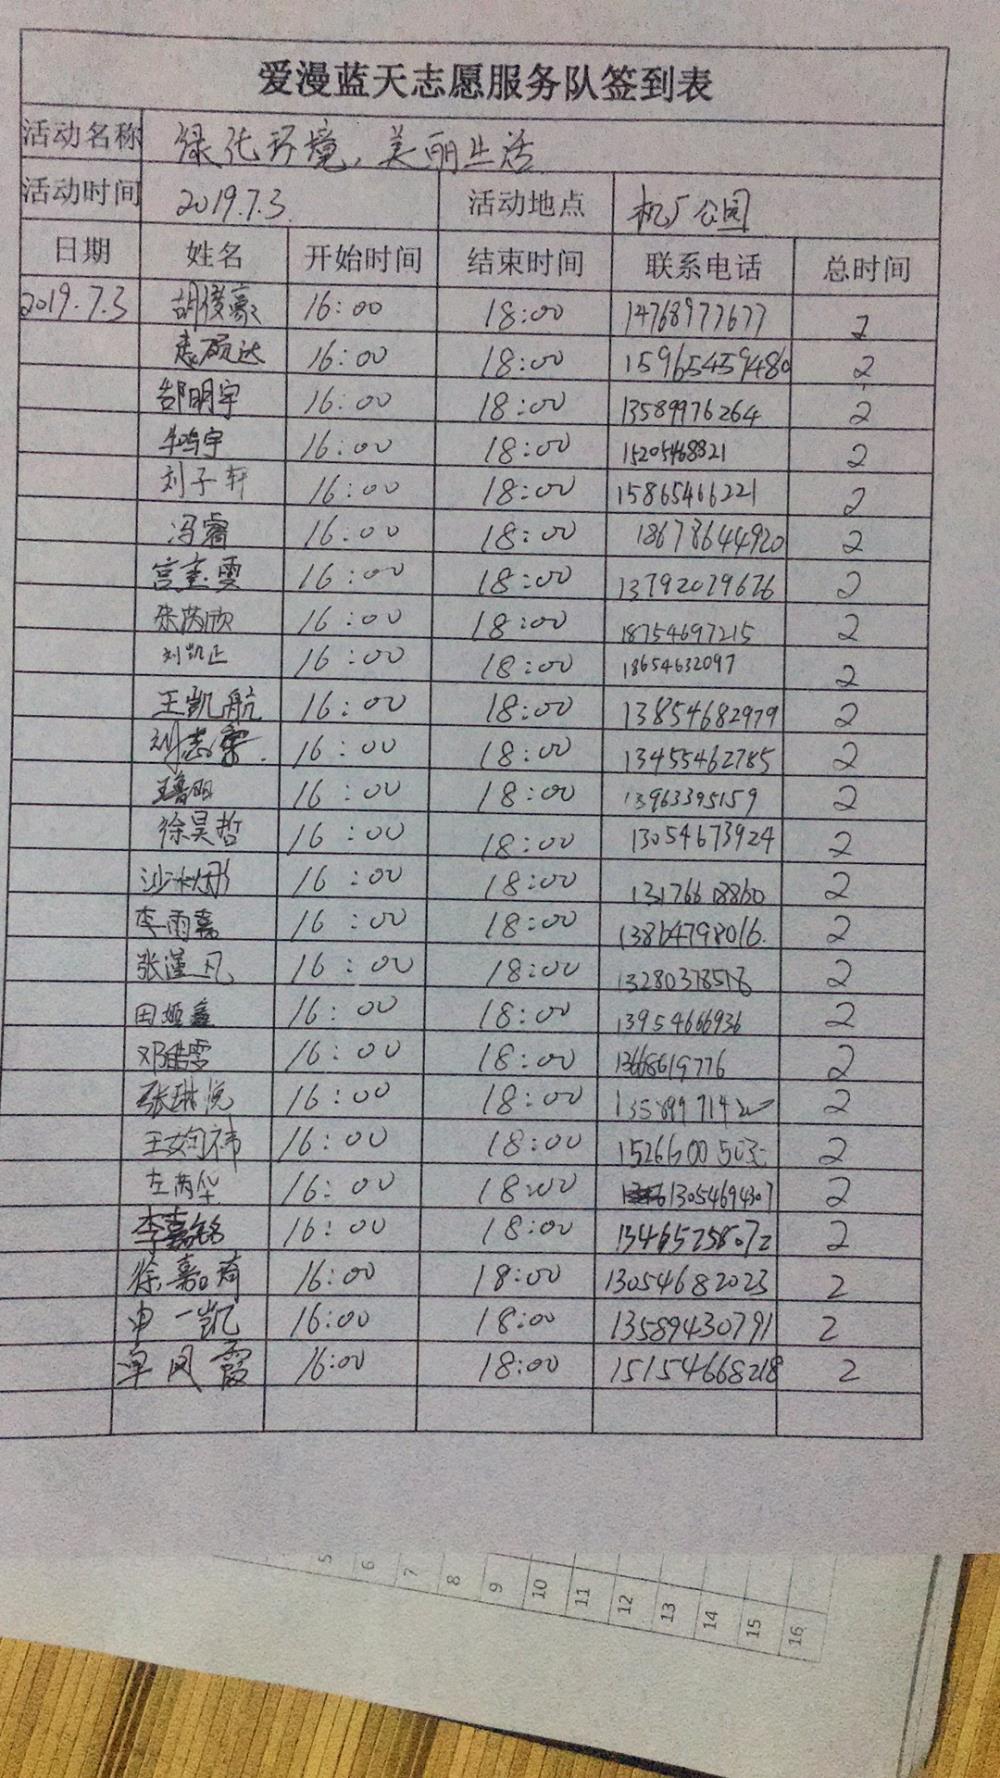 爱漫蓝天志愿服务队签到表
活动名称 绿化环境，美丽生活
活动时间 2019.7.3. 活动地点 机厂公园
日期 姓名 开始时间 结束时间 联系电话 总时间
2019.7.3 胡俊豪 16:00 18:00 14768977677 2
硕达 16:00 18:00 15965459480 2
邵明宇 16:00 18:00 13589976264 2
牛鸣宇 16:00 18:00 15205468321 2
刘子轩 16:00 18:00 15865466221 2
冯睿 16:00 18:00 18678644920 2
宫雯 16:00 18:00 13792079676 2
张芮欣 16:00 18:00 18754697215 2
刘凯正 16:00 18:00 18654632097 2
王凯航 16:00 18:00 13854682979 2
刘志 16:00 18:00 13455462785 2
16:00 18:00 13963395159 2
徐昊哲 16:00 18:00 13054673924 2
沙 16:00 18:00 2
李雨嘉 16:00 18:00 13864798016. 2
张谨凡 16:00 18:00 13280378518 2
田娅鑫 16:00 18:00 13954666936 2
邓皓雯 16:00 18:00 13668619776 2
张琳悦 16:00 18:00 2
王姁祎 16:00 18:00 2
左芮华 16:00 18:00 13054694307 2
李嘉铭 16:00 18:00 13465258072 2
徐嘉蔚 16:00 18:00 13054682023 2
申一凯 16:00 18:00 13589430791 2
单凤霞 16:00 18:00 15154668218 2
5
6
7
8
9
10
11
12
13
14
15
16